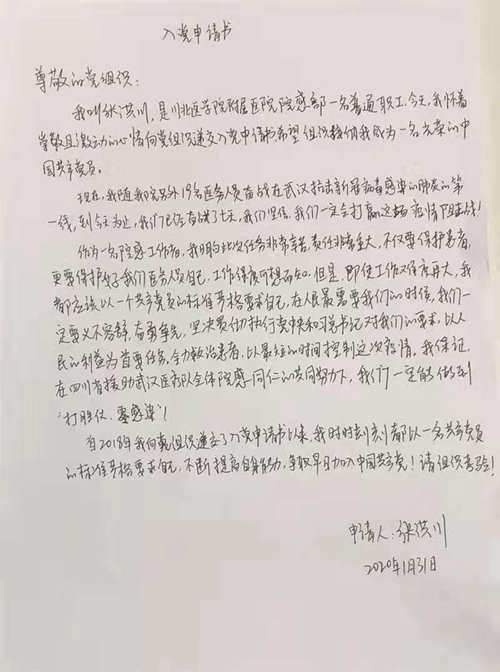 入党申请书
尊敬的党组织：
我叫张洪川，是川北医学院附属医院院感部一名普通职工，今天，我怀着
崇敬且激动的心情向党组织递交入党申请书，希望组织接纳我成为一名光荣的中
国共产党员。
现在，我随我院另外19名医务人员奋战在武汉抗击新冠病毒感染的肺炎的第
一线，到今天为止，我们已经奋战了七天，我们坚信，我们一定会打赢这场疫情阻击战！
作为一名院感工作者，我明白此次任务非常辛苦，责任非常重大，不仅要保护患者，
更要保护好我们医务人员自己，工作强度可想而知。但是，即使工作难度再大，我
都应该以一个共产党员的标准严格要求自己，在人民最需要我们的时候，我们一
定要义不容辞，奋勇争先，坚决贯彻执行党中央和习总书记对我们的要求，以人
民的利益为首要任务，全力救治患者，以最短的时间控制这次疫情。我保证，
在四川省援助武汉医疗队全体院感同仁的共同努力下，我们一定能做到
“打胜仗，零感染”！
自2018年我向党组织递交了入党申请书以来，我时时刻刻都以一名共产党员
的标准严格要求自己，不断提高自身能力，争取早日加入中国共产党！请组织考验！
申请人：张洪川
2020年1月31日